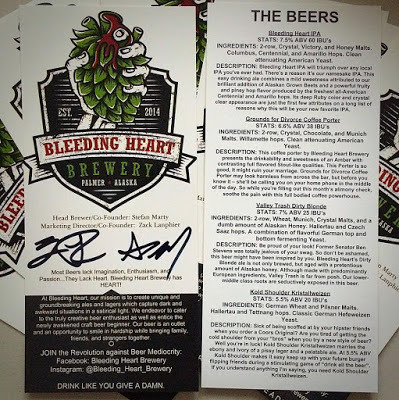 EST.
2014
BLEEDING HEART
BREWERY
PALMER ALASKA
Head Brewer/Co-Founder: Stefan Marty
Marketing Director/Co-Founder: Zack Lanphier
Most Beers lack Imagination, Enthusiasm, and
Passion...They Lack Heart. Bleeding Heart Brewery has
HEART!
At Bleeding Heart, our mission is to create unique and
groundbreaking ales and lagers which capture dark and
awkward situations in a satirical light. We endeavor to cater
to the truly creative beer enthusiast as well as entice the
newly awakened craft beer beginner. Our beer is an outlet
and an opportunity to smile in hardship while bringing family,
friends, and strangers together.
JOIN the Revolution against Beer Mediocrity:
Facebook: Bleeding Heart Brewery
Instagram: @Bleeding_Heart_Brewery
DRINK LIKE YOU GIVE A DAMN.
THE BEERS
Bleeding Heart IPA
STATS: 7.5% ABV 60 IBU's
INGREDIENTS: 2-row, Crystal, Victory, and Honey Malts.
Columbus, Centennial, and Amarillo Hops. Clean
attenuating American Yeast.
DESCRIPTION: Bleeding Heart IPA will triumph over any local
IPA you've ever had. There's a reason it's our namesake IPA. This
easy drinking ale combines a mild sweetness attributed to our
brilliant addition of Alaskan Grown Beets and a powerful fruity
and piney hop flavor produced by the freshest all-American
Centennial and Amarillo hops. Its deep Ruby color and crystal
clear appearance are just the first few attributes on a long list of
reasons why this will be your new favorite IPA.
Grounds for Divorce Coffee Porter
STATS: 6.6% ABV 38 IBU's
INGREDIENTS: 2-row, Crystal, Chocolate, and Munich
Malts. Willamette hops. Clean attenuating American
Yeast.
DESCRIPTION: This coffee porter by Bleeding Heart Brewery
presents the drinkability and sweetness of an Amber with
contrasting full flavored Stout-like qualities. This Porter is so
good, it might ruin your marriage. Grounds for Divorce Coffee
Porter may look harmless from across the bar, but before you
know it – she'll be calling you on your home phone in the middle
of the day. So while you're filling out this month's alimony check,
soothe the pain with this full bodied coffee powerhouse.
Valley Trash Dirty Blonde
STATS: 7% ABV 25 IBU's
INGREDIENTS: 2-row, Wheat, Munich, Crystal Malts, and a
dumb amount of Alaskan honey. Hallertau and Czech
Saaz hops. A combination of flavorful German top and
bottom fermenting Yeast.
DESCRIPTION: Be proud of your looks! Former Senator Ben
Stevens was totally jealous of your swag. So don't be ashamed,
this beer might have been inspired by you. Bleeding Heart's Dirty
Blonde ale is not only brewed, but aged with a pretentious
amount of Alaskan honey. Although made with predominantly
European ingredients, Valley Trash is far from posh. Our lower-
middle class roots are seductively exposed in this beer.
Kold Shoulder Kristallweizen
STATS: 5.5% ABV 20 IBU's
INGREDIENTS: German Wheat and Pilsner Malts.
Hallertau and Tettnang hops. Classic German Hefeweizen
Yeast.
DESCRIPTION: Sick of being scoffed at by your hipster friends
when you order a Coors Original? Are you tired of getting the
cold shoulder from your "bros" when you try a new style of beer?
Well you're in luck! Kold Shoulder Kristallweizen marries the
ebony and ivory of a pissy lager and a palatable ale. At 5.5% ABV
Kold Shoulder makes it easy keep up with your future burger
flipping friends during a stimulating game of "drink all the beer".
If you understand anything I'm saying, you need Kold Shoulder
Kristallweizen.